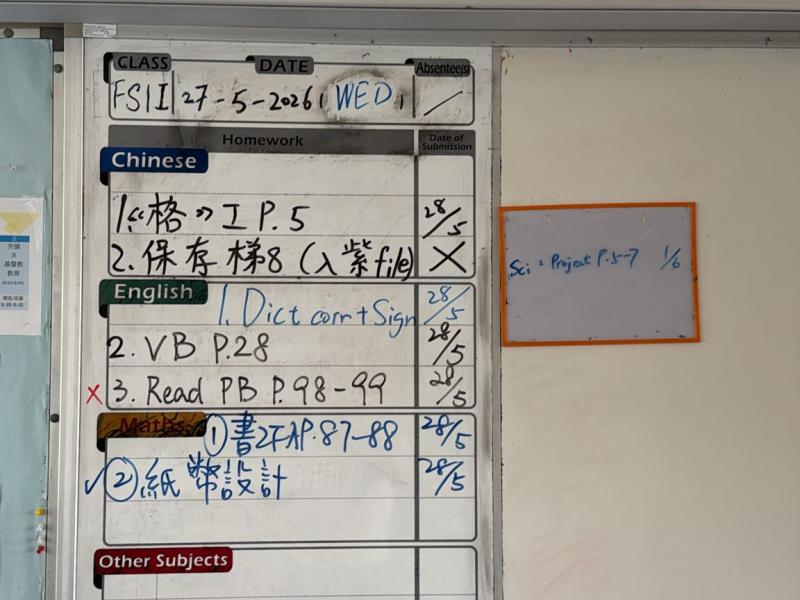 CLASS DATE Absentee(s)
27-5-2026, WED,
Homework Date of Submission
Chinese
1.《格》工 P.5 28/5
2.保存梯8 (入紫file) X
English
1. Dict corr + Sign 28/5
2. VB P.28 28/5
X 3. Read PB P.98-99 28/5
Maths
①書2FAP.87-88 28/5
✓②紙幣設計 28/5
Other Subjects
Sci: Project P.5-7 1/6
升旗
及
基督教
教育